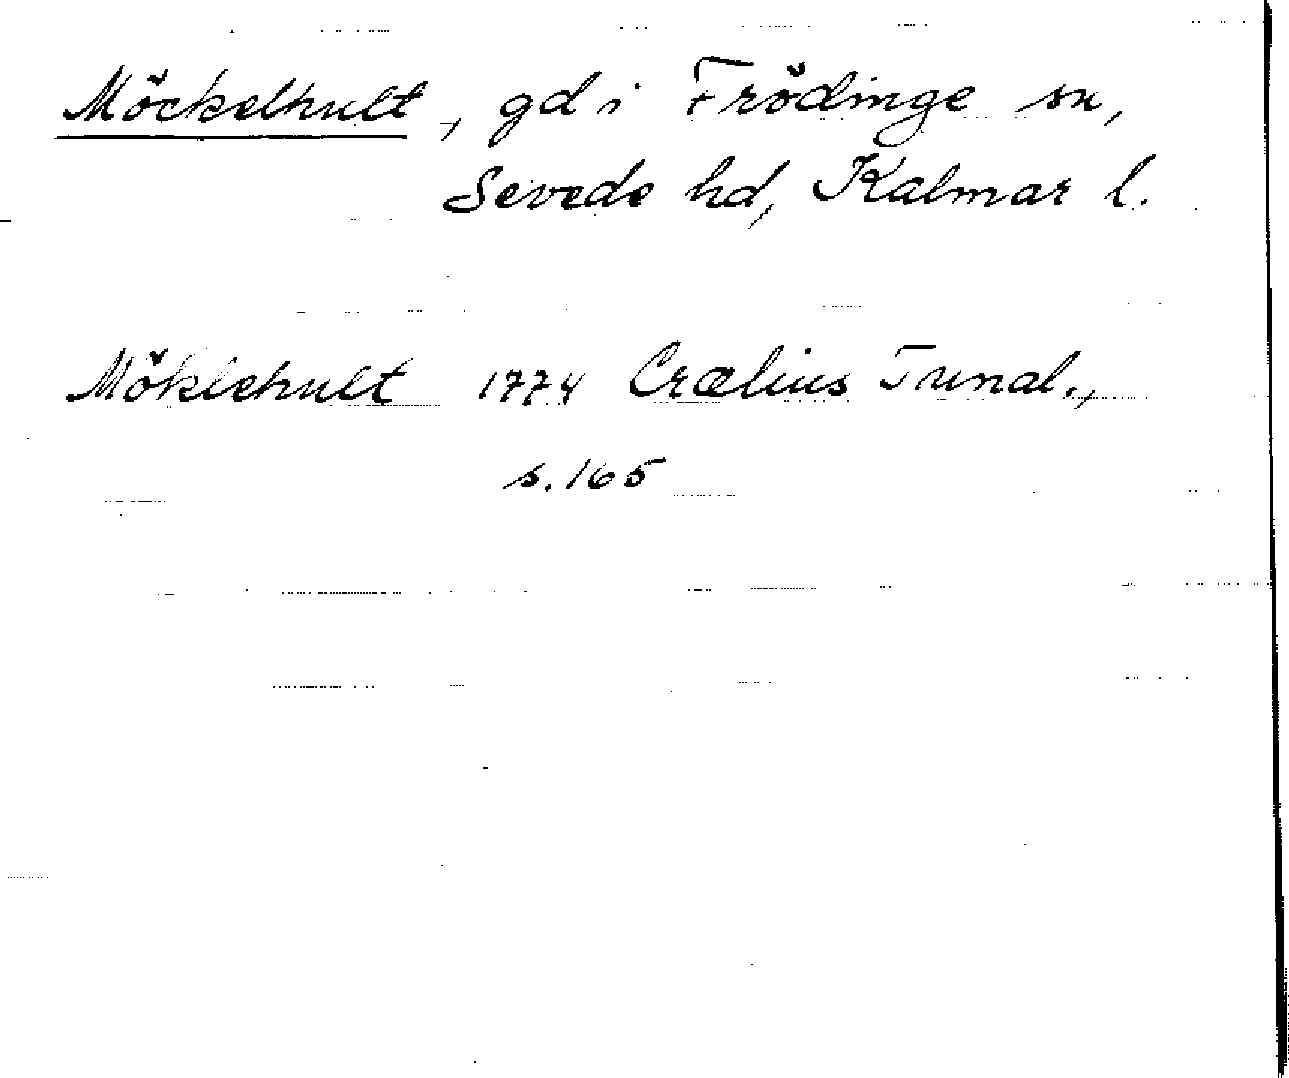 Möckelhult, gd i Frödinge sn,
Sevede hd, Kalmar l.
Möklehult 1774 Crælius Tunal.,
s. 165